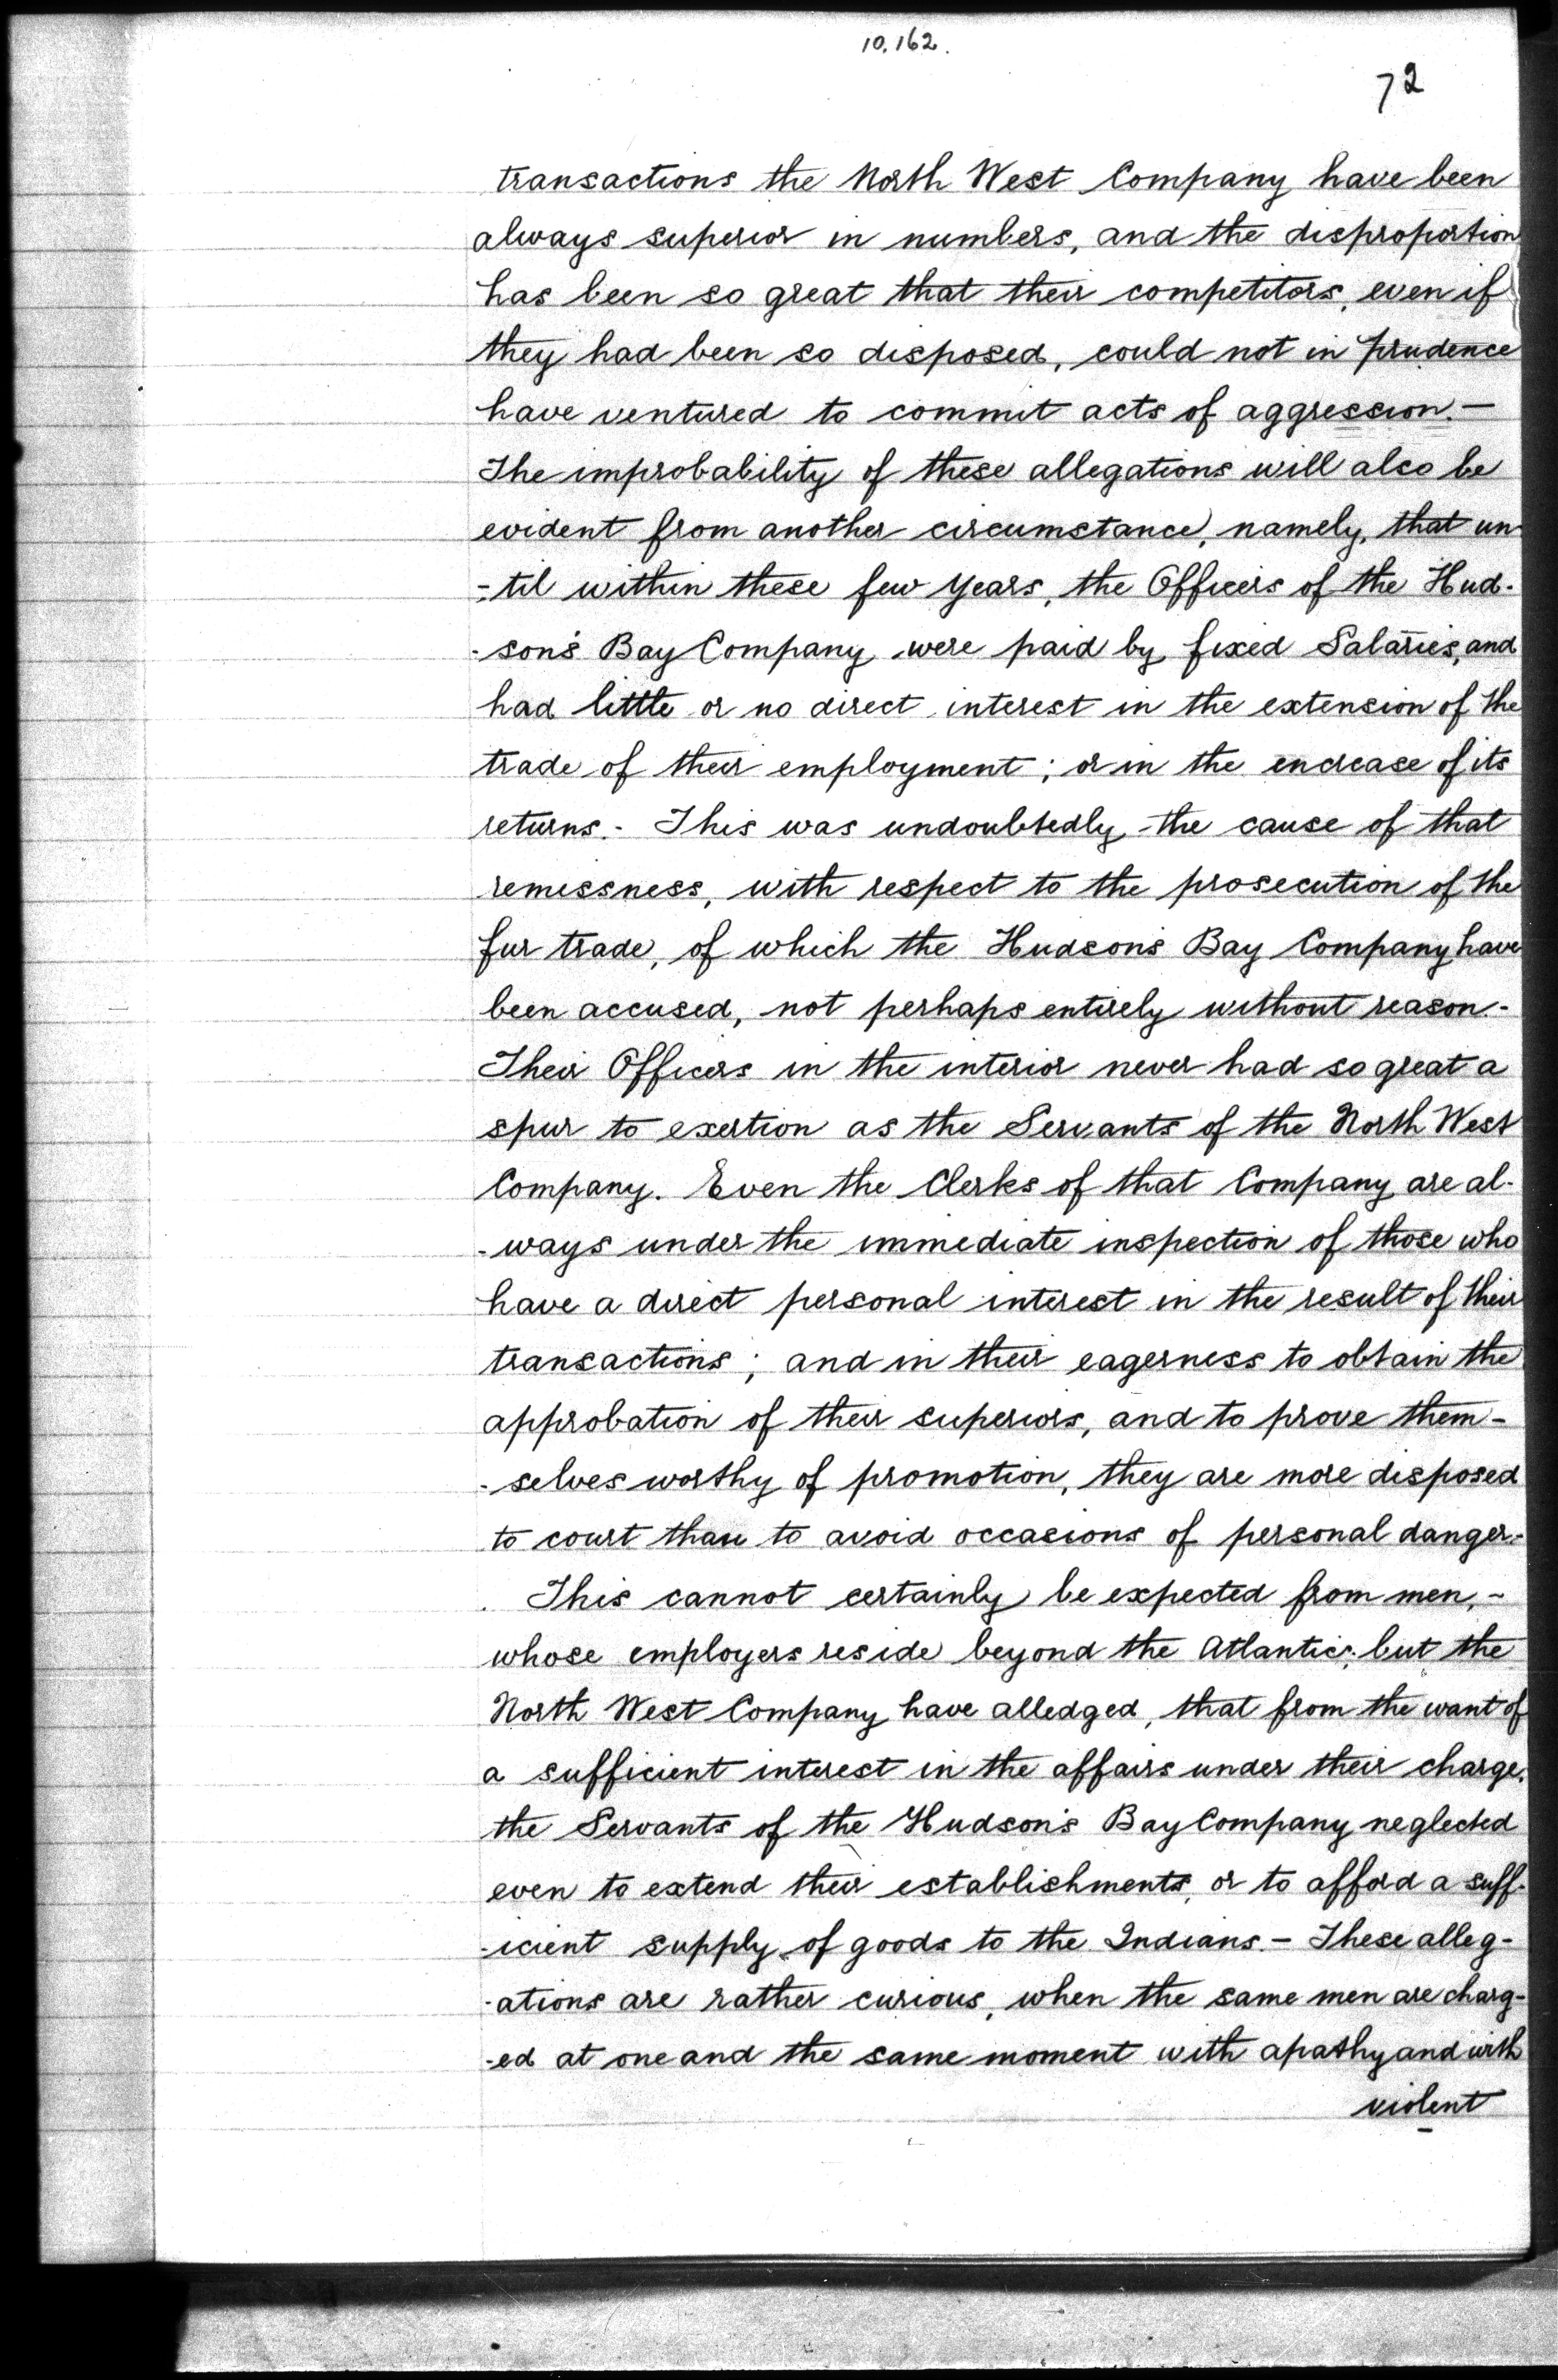 10.162.
72
transactions the North West Company have been
always superior in numbers, and the disproportion
has been so great that their competitors, even if
they had been so disposed, could not in prudence
have ventured to commit acts of aggression. —
The improbability of these allegations will also be
evident from another circumstance, namely, that un
-til within these few years, the Officers of the Hud-
-son's Bay Company were paid by fixed Salaries, and
had little or no direct interest in the extension of the
trade of their employment; or in the encrease of its
returns. - This was undoubtedly the cause of that
remissness, with respect to the prosecution of the
fur trade, of which the Hudson's Bay Company have
been accused, not perhaps entirely without reason. -
Their Officers in the interior never had so great a
spur to exertion as the Servants of the North West
Company. Even the Clerks of that Company are al-
-ways under the immediate inspection of those who
have a direct personal interest in the result of their
transactions; and in their eagerness to obtain the
approbation of their superiors, and to prove them-
-selves worthy of promotion, they are more disposed
to court than to avoid occasions of personal danger. -
This cannot certainly be expected from men, -
whose employers reside beyond the Atlantic; but the
North West Company have alledged, that from the want of
a sufficient interest in the affairs under their charge,
the Servants of the Hudson's Bay Company neglected
even to extend their establishments, or to afford a suff-
-icient supply of goods to the Indians. - These alleg-
-ations are rather curious, when the same men are charg-
-ed at one and the same moment with apathy and with
violent